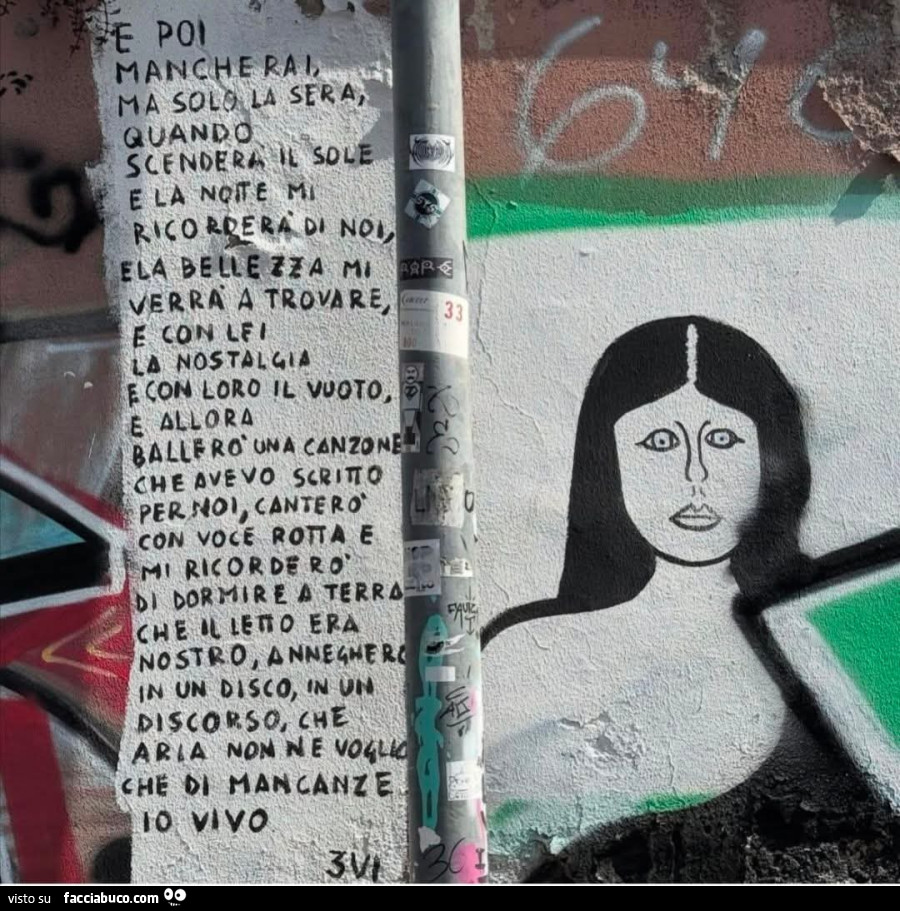 E POI
MANCHERAI,
MA SOLO LA SERA,
QUANDO
SCENDERA' IL SOLE
E LA NOTTE MI
RICORDERA' DI NOI,
E LA BELLEZZA MI
VERRA' A TROVARE,
E CON LEI
LA NOSTALGIA
E CON LORO IL VUOTO,
E ALLORA
BALLERO' UNA CANZONE
CHE AVEVO SCRITTO
PER NOI, CANTERO'
CON VOCE ROTTA E
MI RICORDERO'
DI DORMIRE A TERRA
CHE IL LETTO ERA
NOSTRO, ANNEGHERO
IN UN DISCO, IN UN
DISCORSO, CHE
ARIA NON NE VOGLIO
CHE DI MANCANZE
IO VIVO
3VI
640
33
visto su facciabuco.com